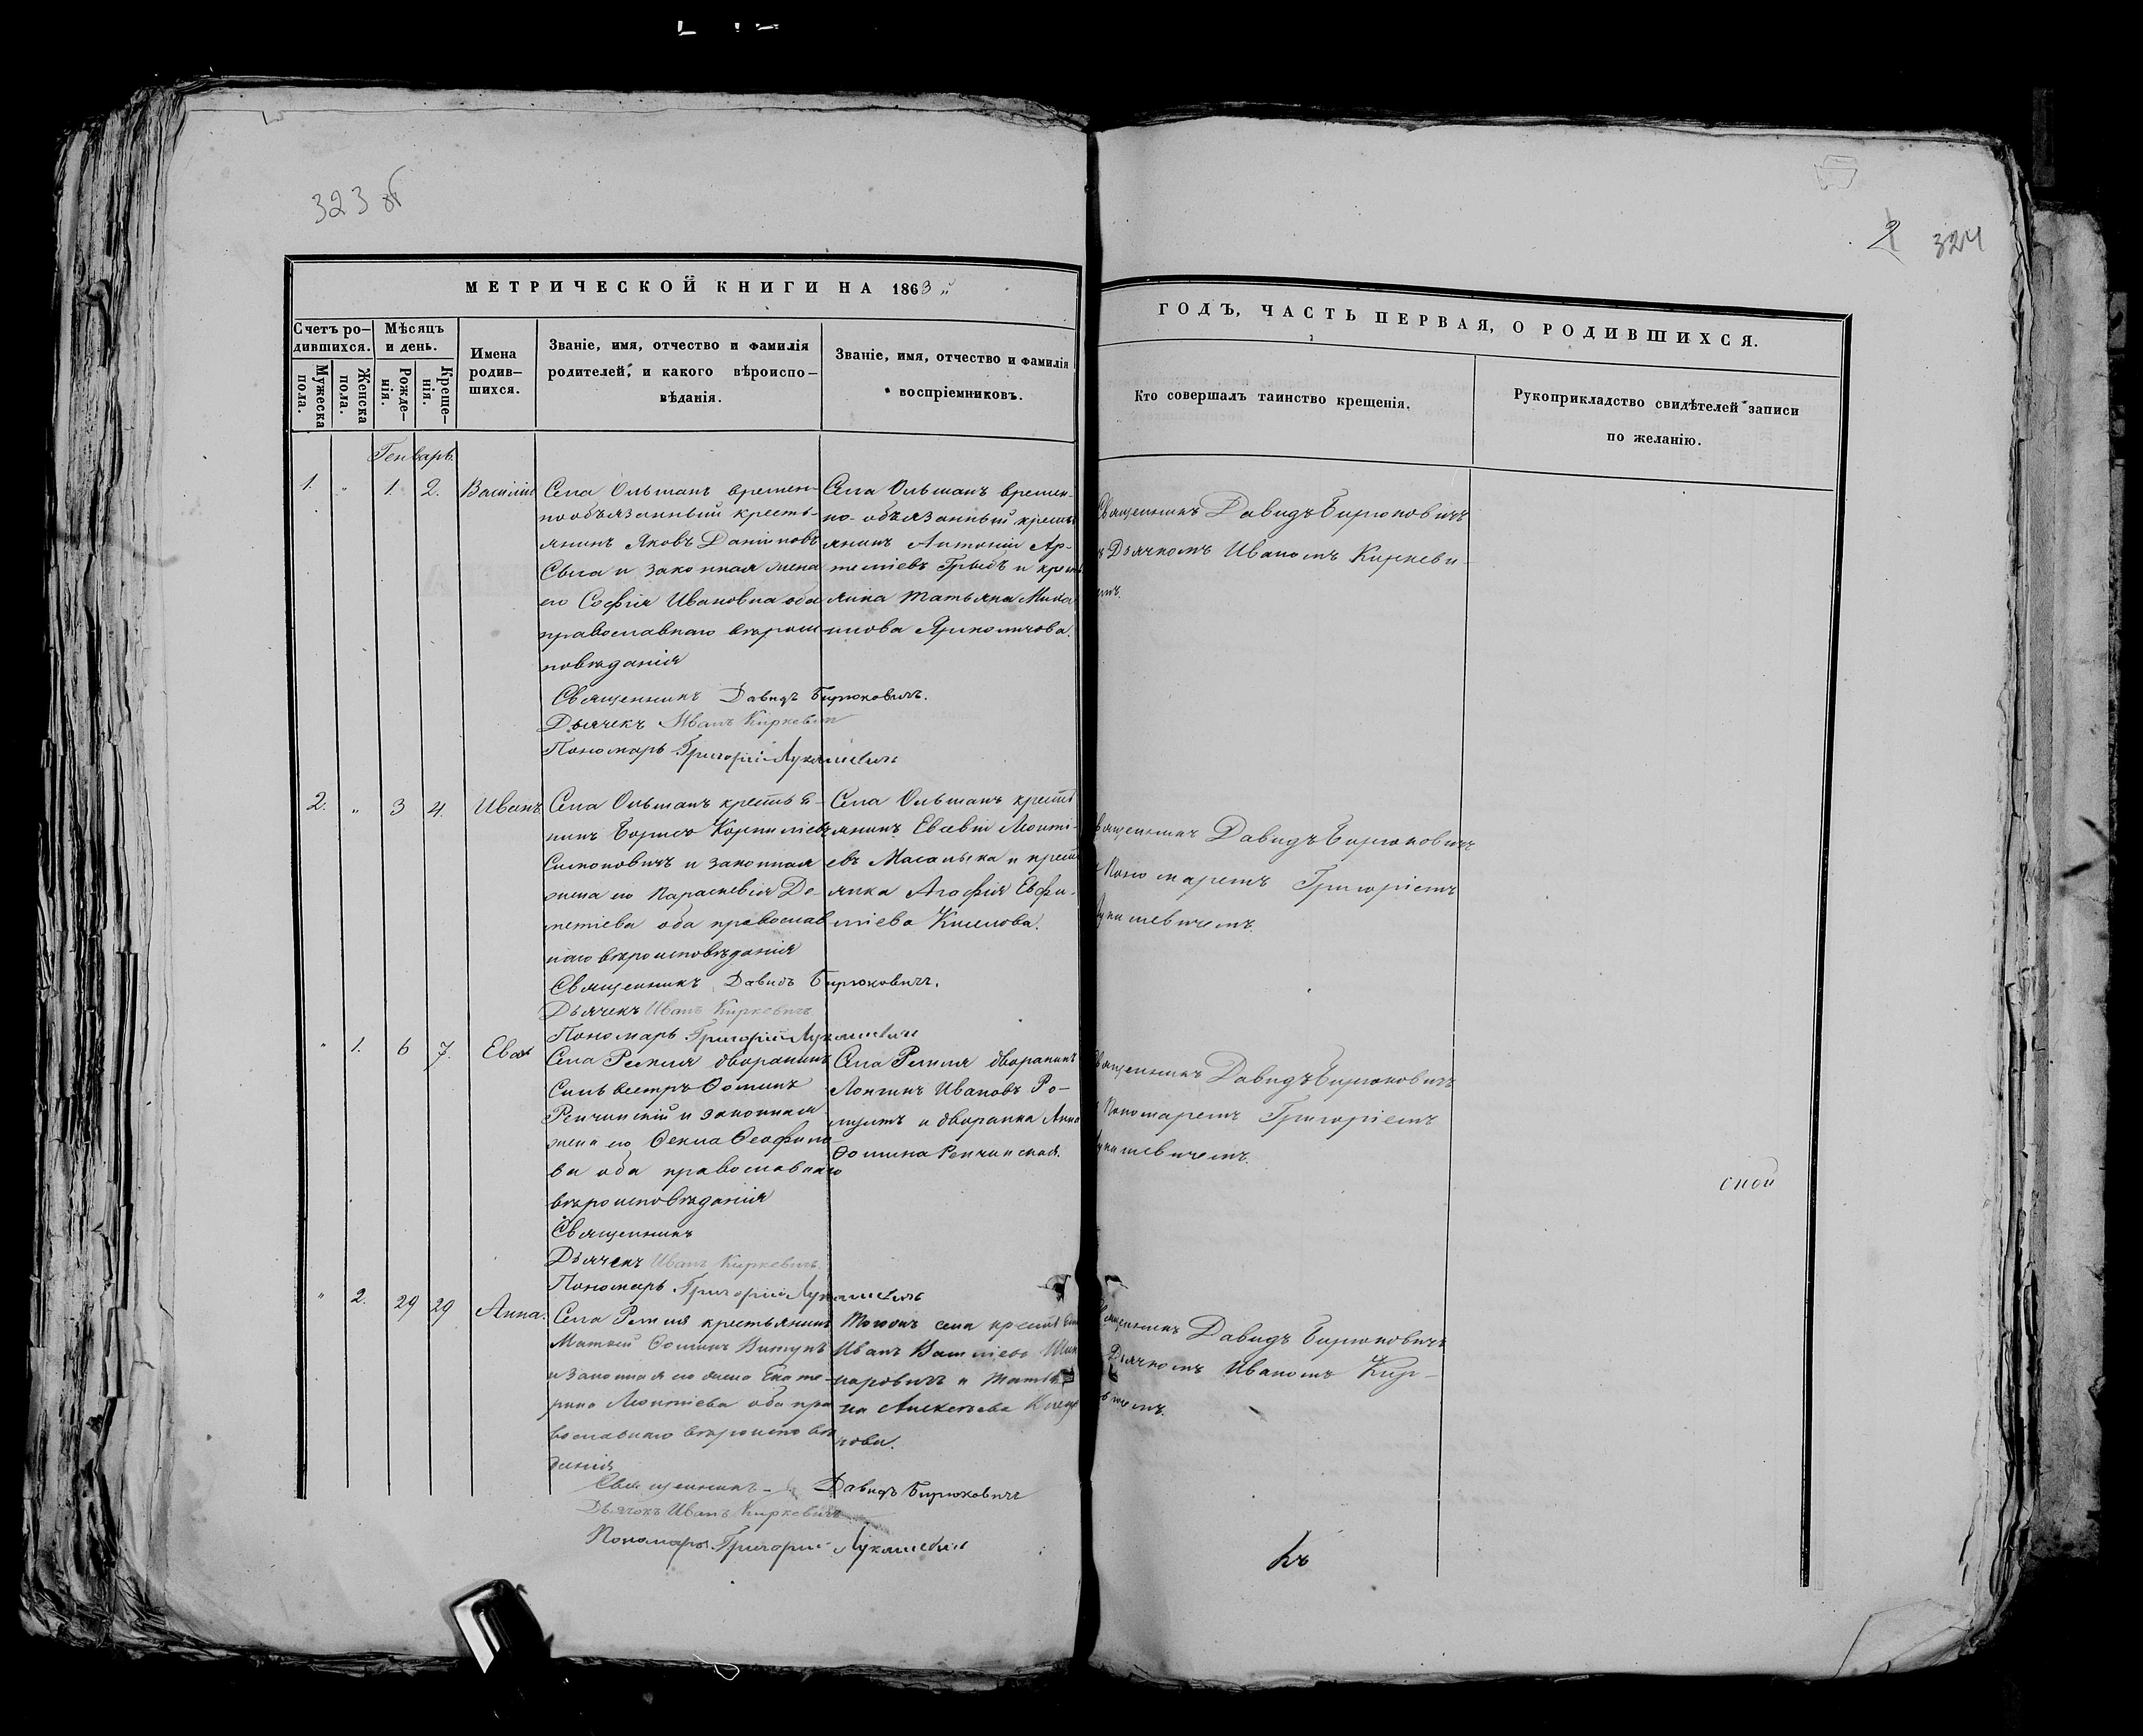 323 об
2 324
МЕТРИЧЕСКОЙ КНИГИ НА 1863
ГОДЪ, ЧАСТЬ ПЕРВАЯ, О РОДИВШИХСЯ.
Счетъ ро–
дившихся.
Мужеска
пола.
Женска
пола.
Мѣсяцъ
и день.
Рожде–
нія.
Креще–
нія.
Имена
родив–
шихся.
Званіе, имя, отчество и фамилія
родителей, и какого вѣроиспо–
вѣданія.
Званіе, имя, отчество и фамилія
воспріемниковъ.
Кто совершалъ таинство крещенія.
Рукоприкладство свидѣтелей записи
по желанію.
Генварь.
1. „ 1. 2. Василій
Села Ольшанъ времен-
нообязанный кресть-
янинъ Яковъ Даніиловъ
и законная жена
его Софія Ивановна оба
православнаго вѣроис-
повѣданія
Священникъ Давидъ Бирюковичъ.
Дьячекъ Иванъ Киркевич
Пономарь Григорій Лукашевичъ
Села Ольшанъ времен-
но-обязанный кресть
янинъ Антоній Ар-
теміевъ Грыбъ и крест
янка Татьяна Миха
илова
Священникъ Давидъ Бирюковичъ
Дьячкомъ Иваномъ Киркеви-
емъ.
2. „ 3 4. Иванъ
Села Ольшанъ крестья-
нинъ Борисъ Корниліевъ
и законная
жена его Параскевія Де-
ментіева оба православ
наго вѣроисповѣданія
Священникъ Давидъ Бирюковичъ.
Дьячекъ Иванъ Киркевичъ
Пономарь Григорій Лукашевичъ
Села Ольшанъ крестья
янинъ Евсевій Леонті-
евъ и крест
янка Агафія Евфи-
міева
Священникъ Давидъ Бирюковичъ
Пономаремъ Григоріемъ
Лукашевичемъ.
„ 1. 6 7. Ева
Села Ремля дворянинъ
Сильвестръ Ѳоминъ
Репчинскій и законная
жена его Ѳекла Ѳеофило
ва оба православнаго
вѣроисповѣданія
Священникъ
Дьячекъ Иванъ Киркевичъ
Пономарь Григорій Лукашевичъ
Села Ремля дворянинъ
Лонгинъ Ивановъ
и дворянка Анна
Ѳомина Репчинская.
Священникъ Давидъ Бирюковичъ
Пономаремъ Григоріемъ
Лукашевичемъ.
ской
„ 2. 29 29 Анна.
Села Ремля крестьянинъ
Матвей Ѳоминъ Витунъ
и законная его жена Екате-
рина Леонтіева оба пра
вославнаго вѣроисповѣ
данія
Священникъ Давидъ Бирюковичъ
Дьячокъ Иванъ Киркевичъ
Пономарь Григорій Лукашевичъ
Тогожъ села крестьян
Иванъ Василіевъ
и Татья
на Алексѣева
Священникъ Давидъ Бирюковичъ
Дьячкомъ Иваномъ Кир-